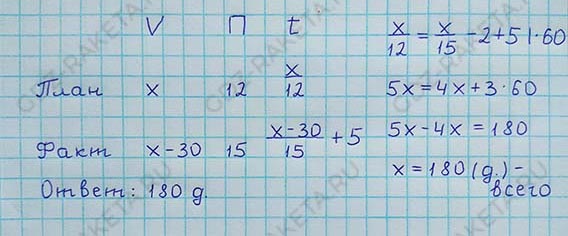 V П t
План x 12 x/12
Факт x-30 15 x-30/15 + 5
Ответ: 180 д.
x/12 = x/15 - 2 + 5 | · 60
5x = 4x + 3 · 60
5x - 4x = 180
x = 180 (д.) -
всего
GDZ-RAKETA.RU